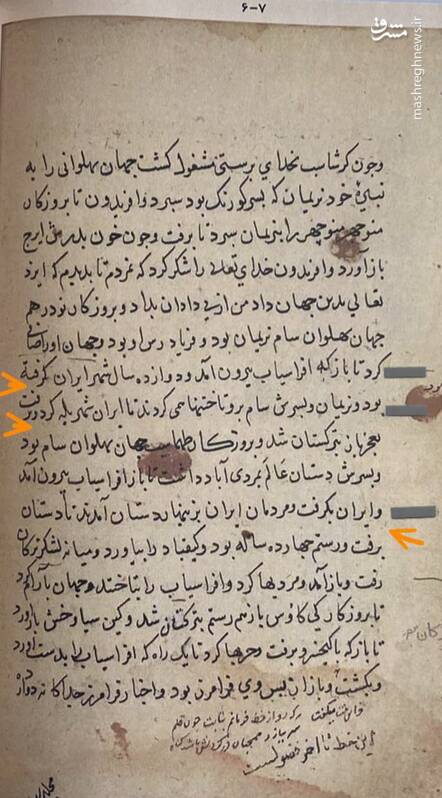 ۶-۷
مشرق
mashreghnews.ir
وجون کرشاسب بخدای برستی مشغول کشت جهان بهلوانی را به
نبیرهٔ خود نریمان که بسر کورنک بود سبرد وافریدون تا بروزکار
منوجهر منوجهر را بنریمان سبرد تا برفت وجون خون بدرش ایرج
بازاورد وافریدون خدای تعالی را شکر کرد که نمردم تا بدیدم که ایزد
تعالی بدین جهان داد من از بی دادان بداد وبروزکار نوذر هم
جهان بهلوان سام نریمان بود و فریاد رس او بود وجهان او راصافی
کرد تا باز که افراسیاب بیرون آمد ودوازده سال شهر ایران کرفته
بود ونریمان وبسرش سام برو تاختنها می کردند تا ایران شهر یله کرد وبرفت
بعجز باز بترکستان شد وبروزکار طهماسب جهان بهلوان سام بود
وبسرش دستان عالم بمردی آباد داشت تا باز افراسیاب بیرون آمد
وایران بکرفت ومردمان ایران بزینهار دستان آمدند تا دستان
برفت ورستم جهارده ساله بود وکیقباد را بیاورد ومیانه لشکر ترکان
رفت وبازآمد ومردیها کرد وافراسیاب را بتاختند وجهان بآرام کرد
تا بروزکار کی کاوس بازهم رستم بترکستان شد وکین سیاوخش بازآورد
تا باز که با کیخسرو برفت وحربها کرد تا یک راه که افراسیاب را بدست آورد
وبکشت وباز از بس وی فرامرز بود واخبار فرامرز جداکانه دوازده
این خط تا آخر فضولیست